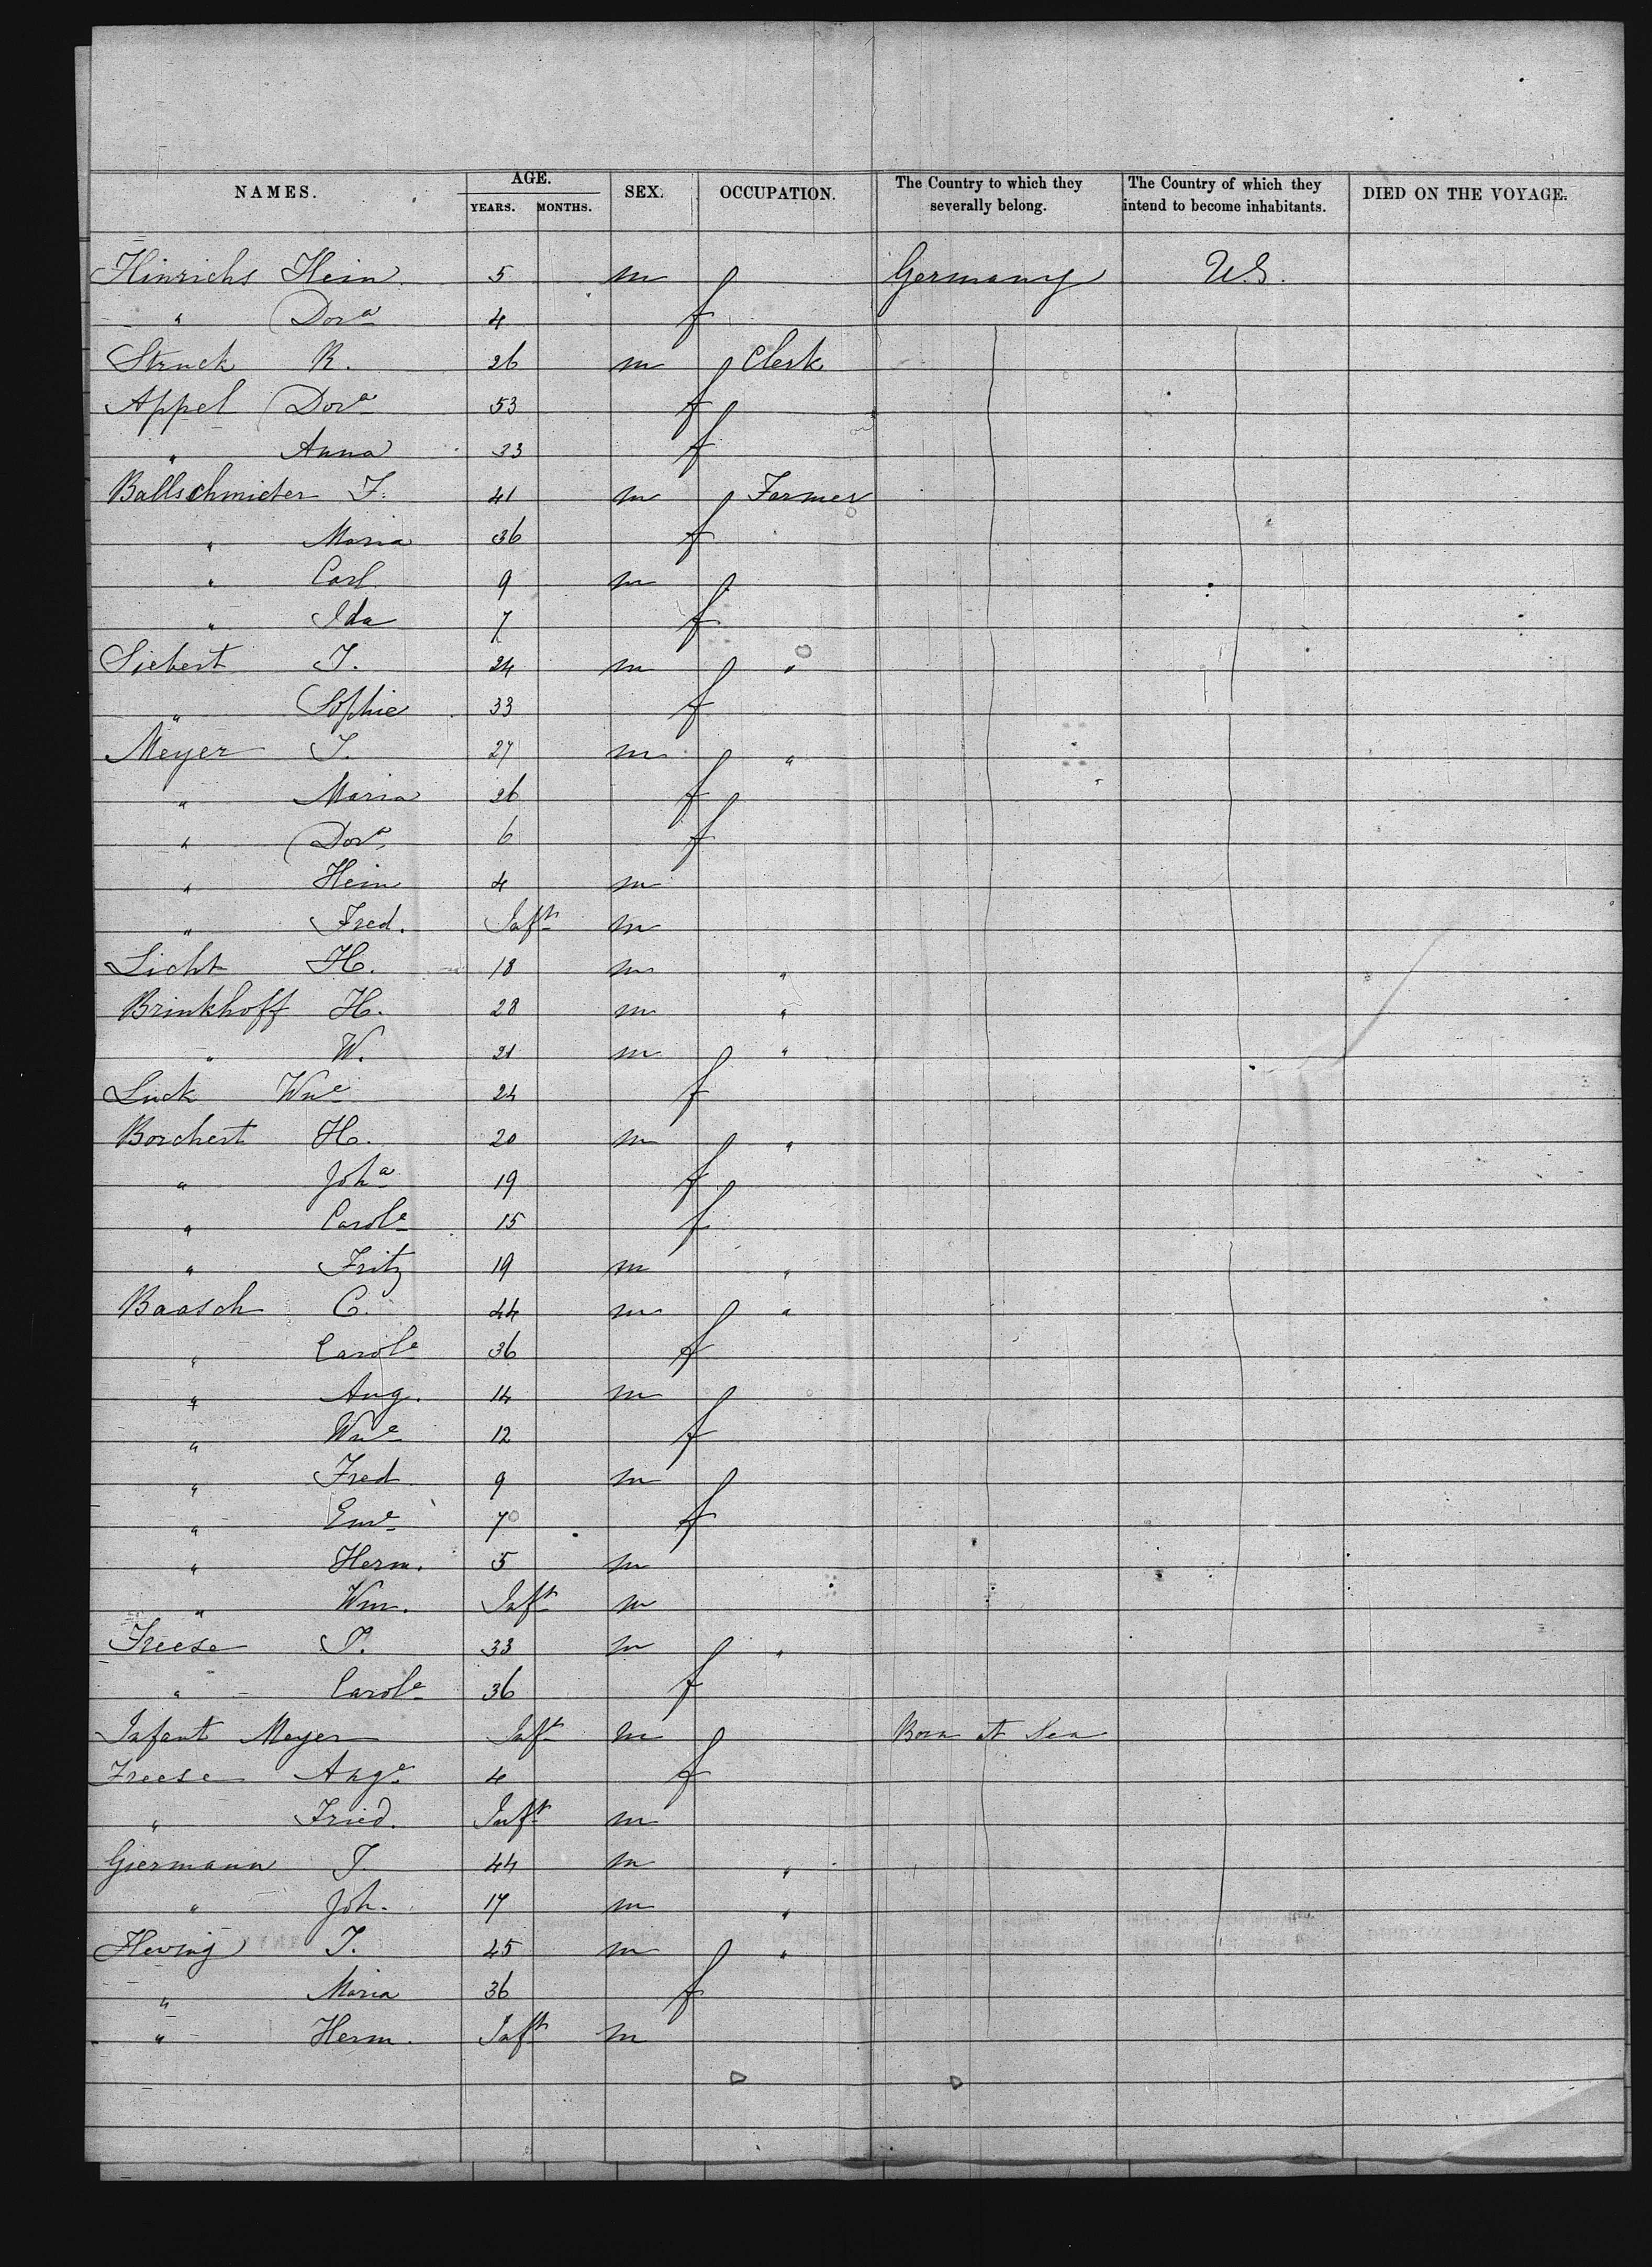 NAMES. AGE. YEARS. MONTHS. SEX. OCCUPATION. The Country to which they severally belong. The Country of which they intend to become inhabitants. DIED ON THE VOYAGE.
Hinrichs Hein. 5 m Germany U.S.
" Dora 4 f
Struck R. 26 m Clerk
Appel Dora 53 f
" Anna 33 f
Ballschmieter F. 41 m Farmer
" Maria 36 f
" Carl 9 m
" Ida 7 f
Siebert J. 24 m "
" Sophie 33 f
Meyer J. 27 m "
" Maria 26 f
" Dora 6 f
" Hein 4 m
" Fred. Inft m
Licht H. 18 m "
Brinkhoff H. 28 m "
" W. 21 m "
Luck Wne 24 f
Borchert H. 20 m "
" Joha 19 f
" Carole 15 f
" Fritz 19 m "
Baasch C. 44 m "
" Carole 36 f
" Aug. 14 m
" Wne 12 f
" Fred 9 m
" Eme 7 f
" Herm. 5 m
" Wm. Inft m
Freese J. 33 m "
" Carole 36 f
Infant Meyer Inft m Born at Sea
Freese Auge 4 f
" Fried. Inft m
Giermann J. 44 m "
" Joh. 17 m "
Heving J. 45 m "
" Maria 36 f
" Herm. Inft m